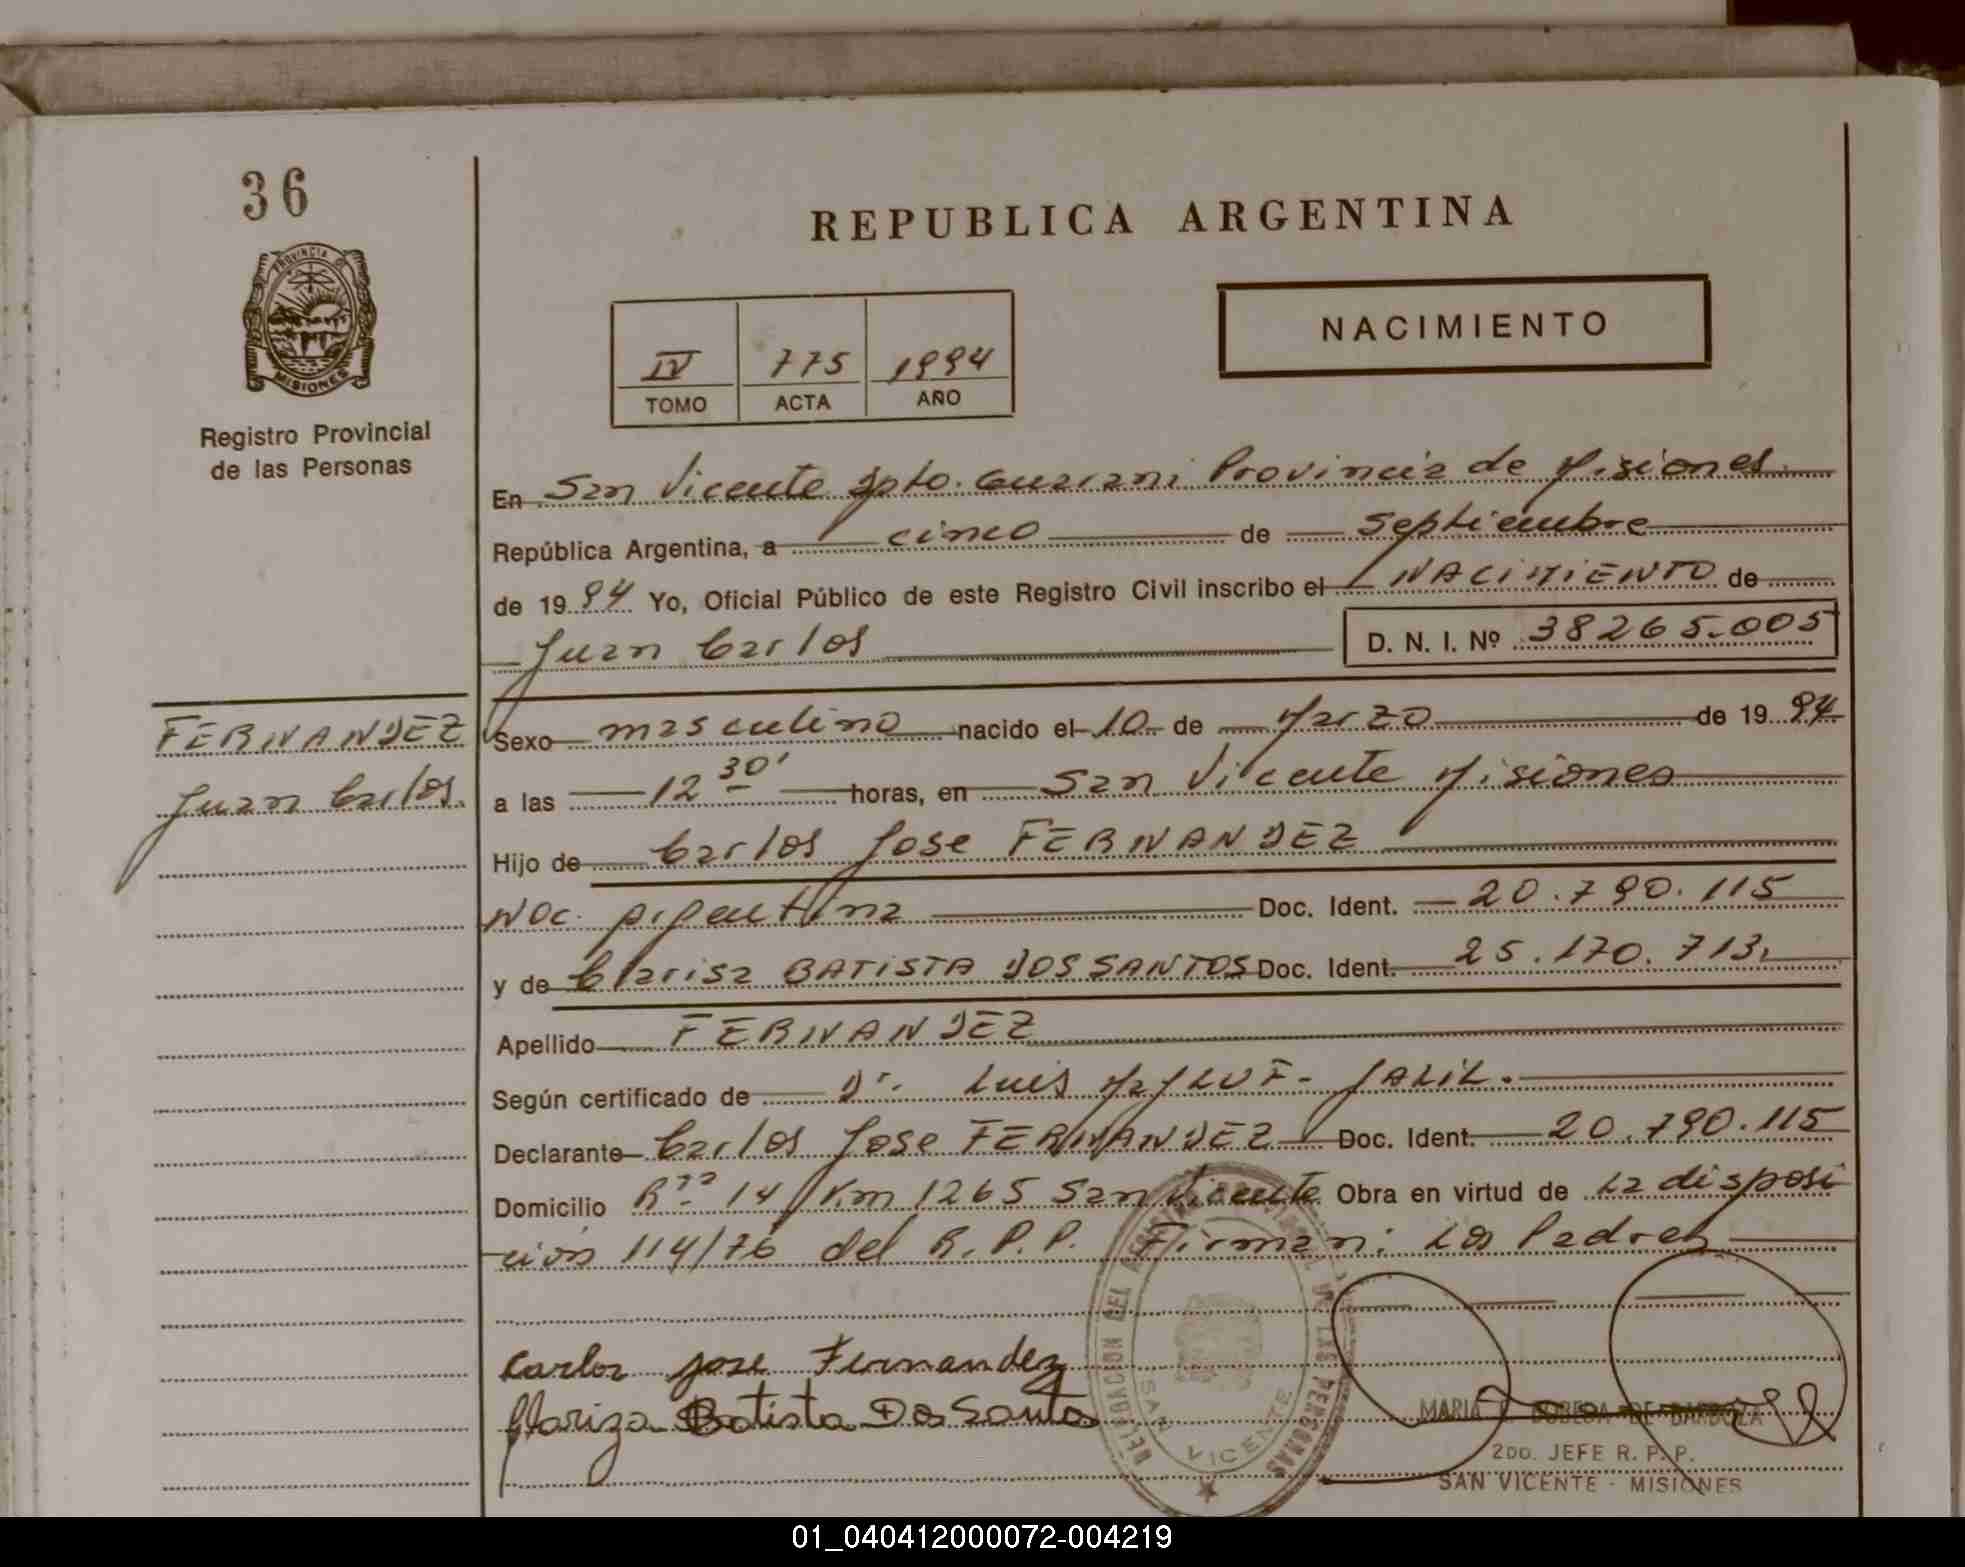 36
PROVINCIA DE
MISIONES
Registro Provincial
de las Personas
REPUBLICA ARGENTINA
NACIMIENTO
IV 775 1994
TOMO ACTA AÑO
En San Vicente Dpto. Guarani Provincia de Misiones
República Argentina, a cinco de Septiembre
de 1994 Yo, Oficial Público de este Registro Civil inscribo el NACIMIENTO de
Juan Carlos D. N. I. Nº 38265.005
FERNANDEZ
Juan Carlos
Sexo masculino nacido el 10 de Marzo de 1994
a las 12 30' horas, en San Vicente Misiones
Hijo de Carlos Jose FERNANDEZ
Nac. Argentina Doc. Ident. 20.790.115
y de Clarisa BATISTA DOS SANTOS Doc. Ident. 25.170.713
Apellido FERNANDEZ
Según certificado de Dr. Luis JALIL.
Declarante Carlos Jose FERNANDEZ Doc. Ident. 20.790.115
Domicilio 14 Km 1265 San Vicente Obra en virtud de La disposi
ción 114/76 del R.P.P. Firman: Los Padres
Carlos Jose Fernandez
Clariza Batista Dos Santos
DELEGACION DEL REGISTRO PROVINCIAL DE LAS PERSONAS
SAN VICENTE
MARIA DE BARBOZA
2DO. JEFE R. P. P.
SAN VICENTE - MISIONES
01_040412000072-004219